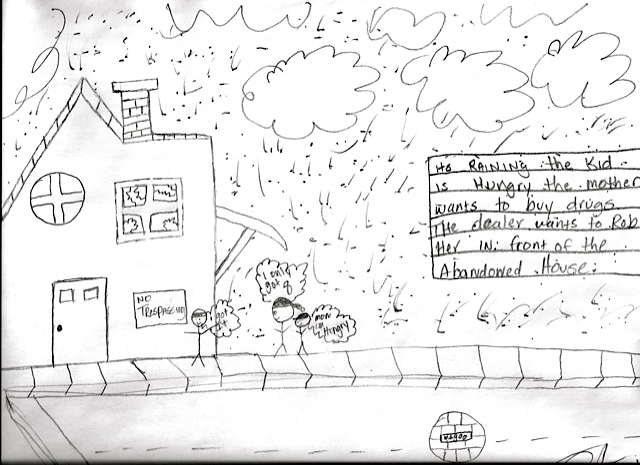 Its RAINING. the Kid
is Hungry the mother
wants to buy drugs.
The dealer wants to Rob
Her IN. front of the
Abandoned House.
I only
got 8
NO
TRESPASSING
got
mom
Im
Hungry